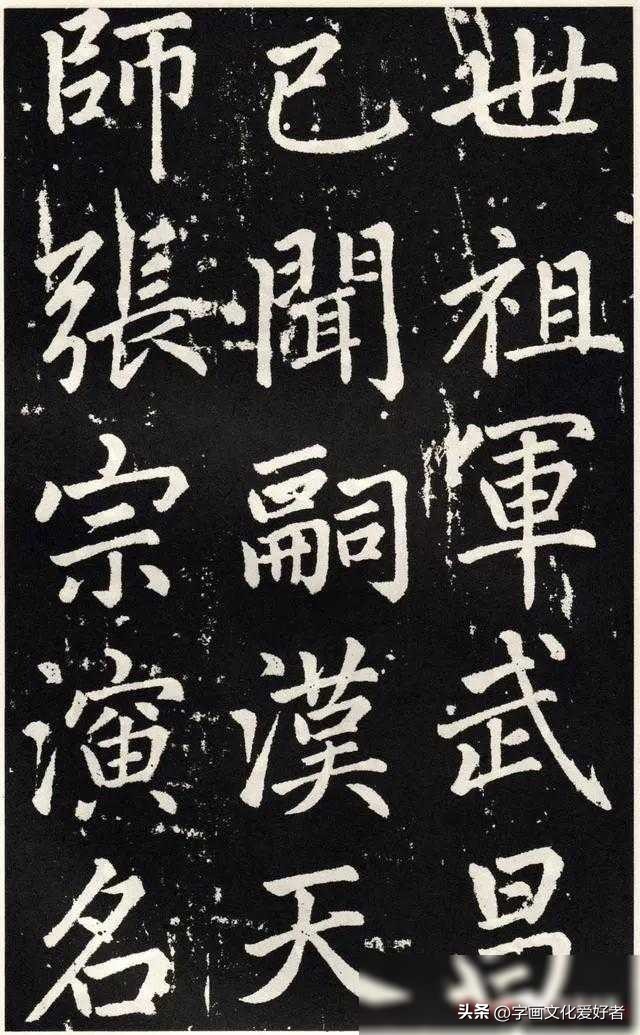 世祖軍武昌
已聞嗣漢天
師張宗演名
头条 @字画文化爱好者